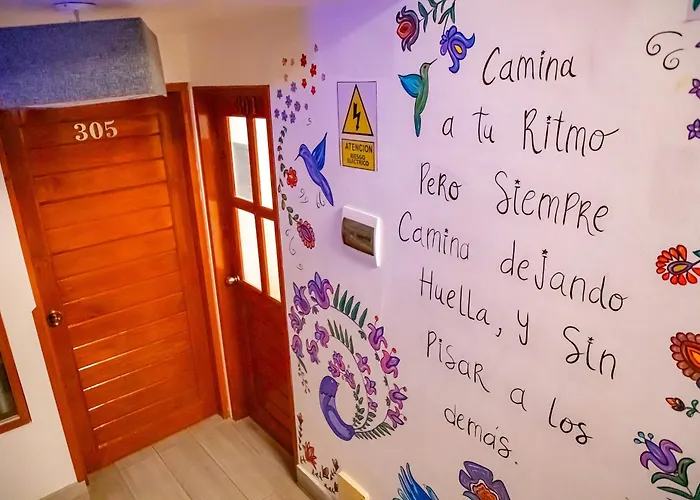 305
ATENCION
RIESGO
ELÉCTRICO
Camina
a tu Ritmo
Pero Siempre
Camina dejando
Huella, y Sin
Pisar a los
demás.